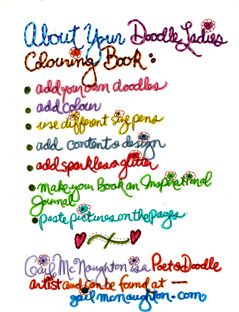 About Your Doodle Ladies
Colouring Book:
add your own doodles
add colour
use different size pens
add content & design
add sparkles & glitter
make your Book an Inspirational
Journal
paste pictures on the pages
Gail McNaughton is a Poet & Doodle
artist and can be found at —
gailmcnaughton.com